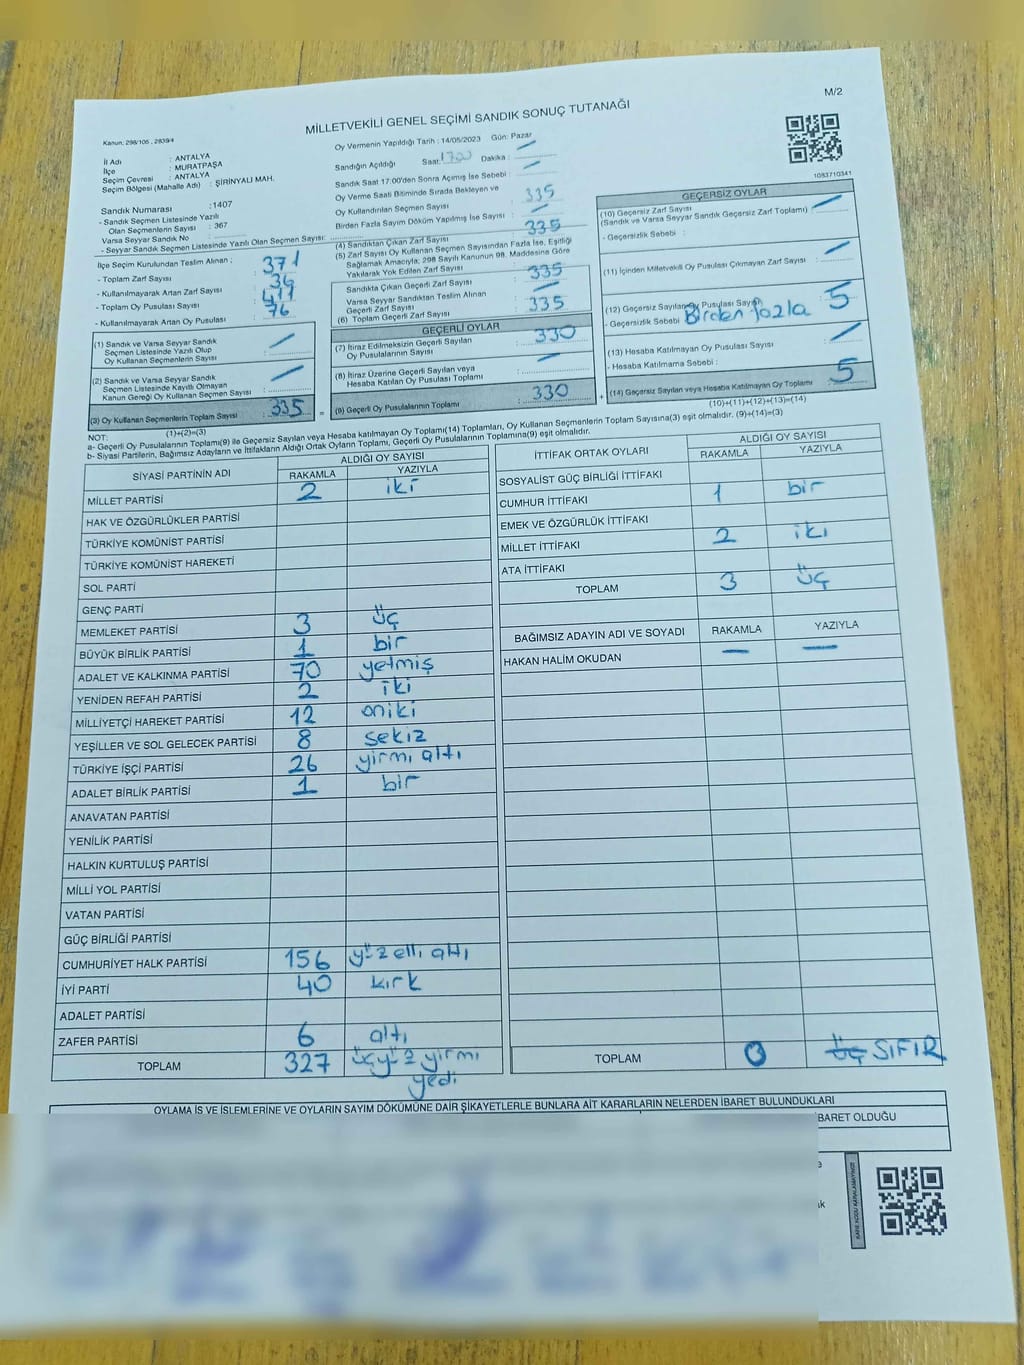 M/2
MİLLETVEKİLİ GENEL SEÇİMİ SANDIK SONUÇ TUTANAĞI
Kanun: 298/105 , 2839/4
İl Adı : ANTALYA
İlçe : MURATPAŞA
Seçim Çevresi : ANTALYA
Seçim Bölgesi (Mahalle Adı) : ŞİRİNYALI MAH.
Sandık Numarası :1407
- Sandık Seçmen Listesinde Yazılı
Olan Seçmenlerin Sayısı : 367
Varsa Seyyar Sandık No :
- Seyyar Sandık Seçmen Listesinde Yazılı Olan Seçmen Sayısı:
İlçe Seçim Kurulundan Teslim Alınan ;
- Toplam Zarf Sayısı : 371
- Kullanılmayarak Artan Zarf Sayısı : 36
- Toplam Oy Pusulası Sayısı : 411
- Kullanılmayarak Artan Oy Pusulası : 76
(1) Sandık ve Varsa Seyyar Sandık
Seçmen Listesinde Yazılı Olup
Oy Kullanan Seçmenlerin Sayısı :
(2) Sandık ve Varsa Seyyar Sandık
Seçmen Listesinde Kayıtlı Olmayan
Kanun Gereği Oy Kullanan Seçmen Sayısı :
(3) Oy Kullanan Seçmenlerin Toplam Sayısı : 335
(1)+(2)=(3)
Oy Vermenin Yapıldığı Tarih : 14/05/2023 Gün: Pazar
Sandığın Açıldığı Saat: 1700 Dakika :
Sandık Saat 17:00'den Sonra Açılmış İse Sebebi :
Oy Verme Saati Bitiminde Sırada Bekleyen ve
Oy Kullandırılan Seçmen Sayısı : 335
Birden Fazla Sayım Döküm Yapılmış İse Sayısı :
(4) Sandıktan Çıkan Zarf Sayısı : 335
(5) Zarf Sayısı Oy Kullanan Seçmen Sayısından Fazla İse, Eşitliği
Sağlamak Amacıyla; 298 Sayılı Kanunun 98. Maddesine Göre
Yakılarak Yok Edilen Zarf Sayısı :
Sandıkta Çıkan Geçerli Zarf Sayısı : 335
Varsa Seyyar Sandıktan Teslim Alınan
Geçerli Zarf Sayısı :
(6) Toplam Geçerli Zarf Sayısı : 335
GEÇERLİ OYLAR
(7) İtiraz Edilmeksizin Geçerli Sayılan
Oy Pusulalarının Sayısı : 330
(8) İtiraz Üzerine Geçerli Sayılan veya
Hesaba Katılan Oy Pusulası Toplamı :
(9) Geçerli Oy Pusulalarının Toplamı : 330
1083710341
GEÇERSİZ OYLAR
(10) Geçersiz Zarf Sayısı
(Sandık ve Varsa Seyyar Sandık Geçersiz Zarf Toplamı) :
- Geçersizlik Sebebi :
(11) İçinden Milletvekili Oy Pusulası Çıkmayan Zarf Sayısı :
(12) Geçersiz Sayılan Oy Pusulası Sayısı : 5
- Geçersizlik Sebebi : Birden fazla
(13) Hesaba Katılmayan Oy Pusulası Sayısı :
- Hesaba Katılmama Sebebi :
(14) Geçersiz Sayılan veya Hesaba Katılmayan Oy Toplamı : 5
(10)+(11)+(12)+(13)=(14)
NOT:
a- Geçerli Oy Pusulalarının Toplamı(9) ile Geçersiz Sayılan veya Hesaba katılmayan Oy Toplamı(14) Toplamları, Oy Kullanan Seçmenlerin Toplam Sayısına(3) eşit olmalıdır. (9)+(14)=(3)
b- Siyasi Partilerin, Bağımsız Adayların ve İttifakların Aldığı Ortak Oyların Toplamı, Geçerli Oy Pusulalarının Toplamına(9) eşit olmalıdır.
SİYASİ PARTİNİN ADI ALDIĞI OY SAYISI
RAKAMLA YAZIYLA
MİLLET PARTİSİ 2 iki
HAK VE ÖZGÜRLÜKLER PARTİSİ
TÜRKİYE KOMÜNİST PARTİSİ
TÜRKİYE KOMÜNİST HAREKETİ
SOL PARTİ
GENÇ PARTİ
MEMLEKET PARTİSİ 3 üç
BÜYÜK BİRLİK PARTİSİ 1 bir
ADALET VE KALKINMA PARTİSİ 70 yetmiş
YENİDEN REFAH PARTİSİ 2 iki
MİLLİYETÇİ HAREKET PARTİSİ 12 oniki
YEŞİLLER VE SOL GELECEK PARTİSİ 8 sekiz
TÜRKİYE İŞÇİ PARTİSİ 26 yirmi altı
ADALET BİRLİK PARTİSİ 1 bir
ANAVATAN PARTİSİ
YENİLİK PARTİSİ
HALKIN KURTULUŞ PARTİSİ
MİLLİ YOL PARTİSİ
VATAN PARTİSİ
GÜÇ BİRLİĞİ PARTİSİ
CUMHURİYET HALK PARTİSİ 156 yüz elli altı
İYİ PARTİ 40 kırk
ADALET PARTİSİ
ZAFER PARTİSİ 6 altı
TOPLAM 327 üçyüz yirmi
yedi
İTTİFAK ORTAK OYLARI ALDIĞI OY SAYISI
RAKAMLA YAZIYLA
SOSYALİST GÜÇ BİRLİĞİ İTTİFAKI
CUMHUR İTTİFAKI 1 bir
EMEK VE ÖZGÜRLÜK İTTİFAKI
MİLLET İTTİFAKI 2 iki
ATA İTTİFAKI
TOPLAM 3 üç
BAĞIMSIZ ADAYIN ADI VE SOYADI RAKAMLA YAZIYLA
HAKAN HALİM OKUDAN — —
TOPLAM 0 üç SIFIR
OYLAMA İŞ VE İŞLEMLERİNE VE OYLARIN SAYIM DÖKÜMÜNE DAİR ŞİKAYETLERLE BUNLARA AİT KARARLARIN NELERDEN İBARET BULUNDUKLARI
İBARET OLDUĞU